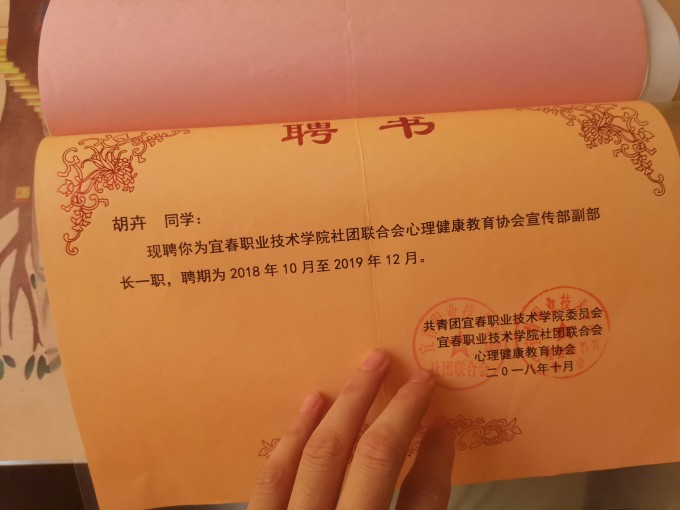 聘 书
胡卉 同学：
现聘你为宜春职业技术学院社团联合会心理健康教育协会宣传部副部
长一职，聘期为 2018 年 10 月至 2019 年 12 月。
共青团宜春职业技术学院委员会
宜春职业技术学院社团联合会
心理健康教育协会
二〇一八年十月
社团联合会